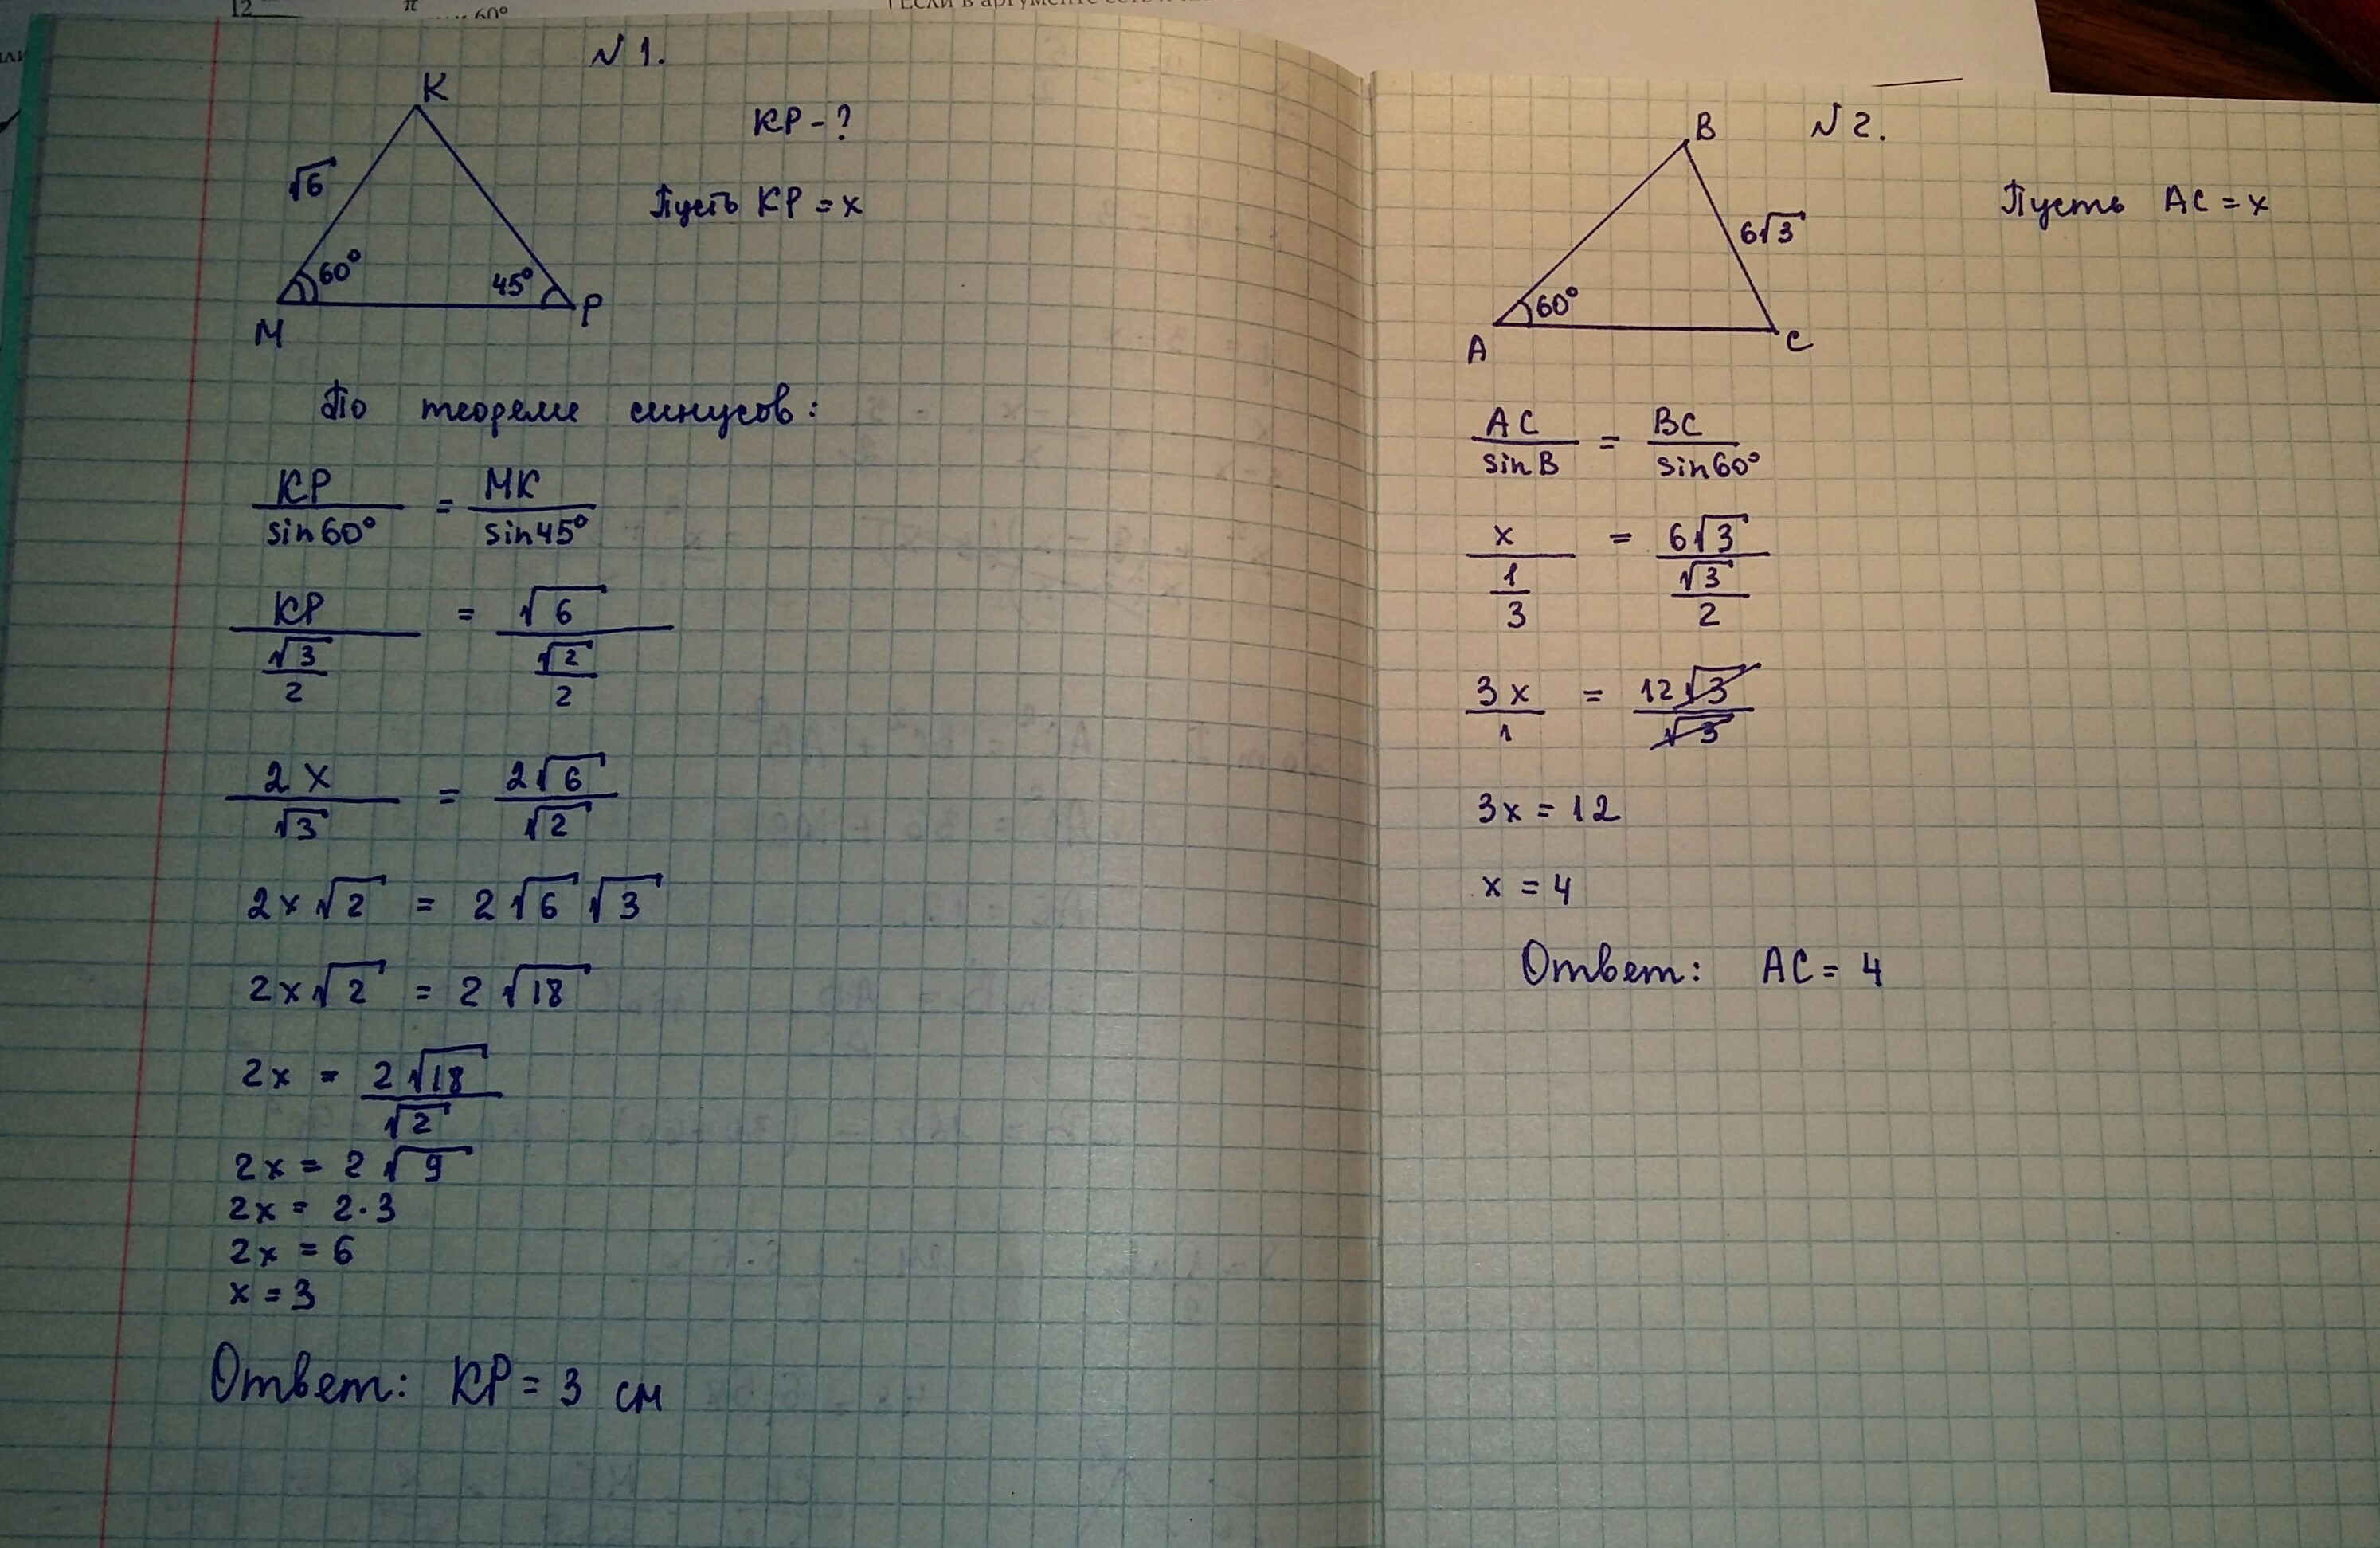 12
π
60°
N 1.
K
KP - ?
√6
Пусть KP = x
60°
45°
M
P
По теореме синусов:
KP/sin60° = MK/sin45°
KP/(√3/2) = √6/(√2/2)
2x/√3 = 2√6/√2
2x√2 = 2√6√3
2x√2 = 2√18
2x = 2√18/√2
2x = 2√9
2x = 2·3
2x = 6
x = 3
Ответ: KP = 3 см
N 2.
B
Пусть AC = x
6√3
60°
A
C
AC/sinB = BC/sin60°
x/(1/3) = 6√3/(√3/2)
3x/1 = 12√3/√3
3x = 12
x = 4
Ответ: AC = 4